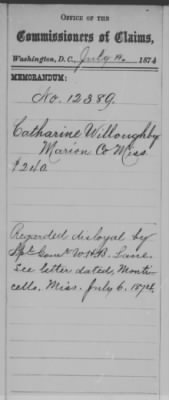 OFFICE OF THE
Commissioners of Claims,
Washington, D.C., July 14, 1874
MEMORANDUM:
No. 12389.
Catharine Willoughby
Marion Co Miss.
$240.
Regarded disloyal by
Spl. Comr. W.H.B. Lane.
See letter dated, Monti-
cello, Miss. July 6. 1874.